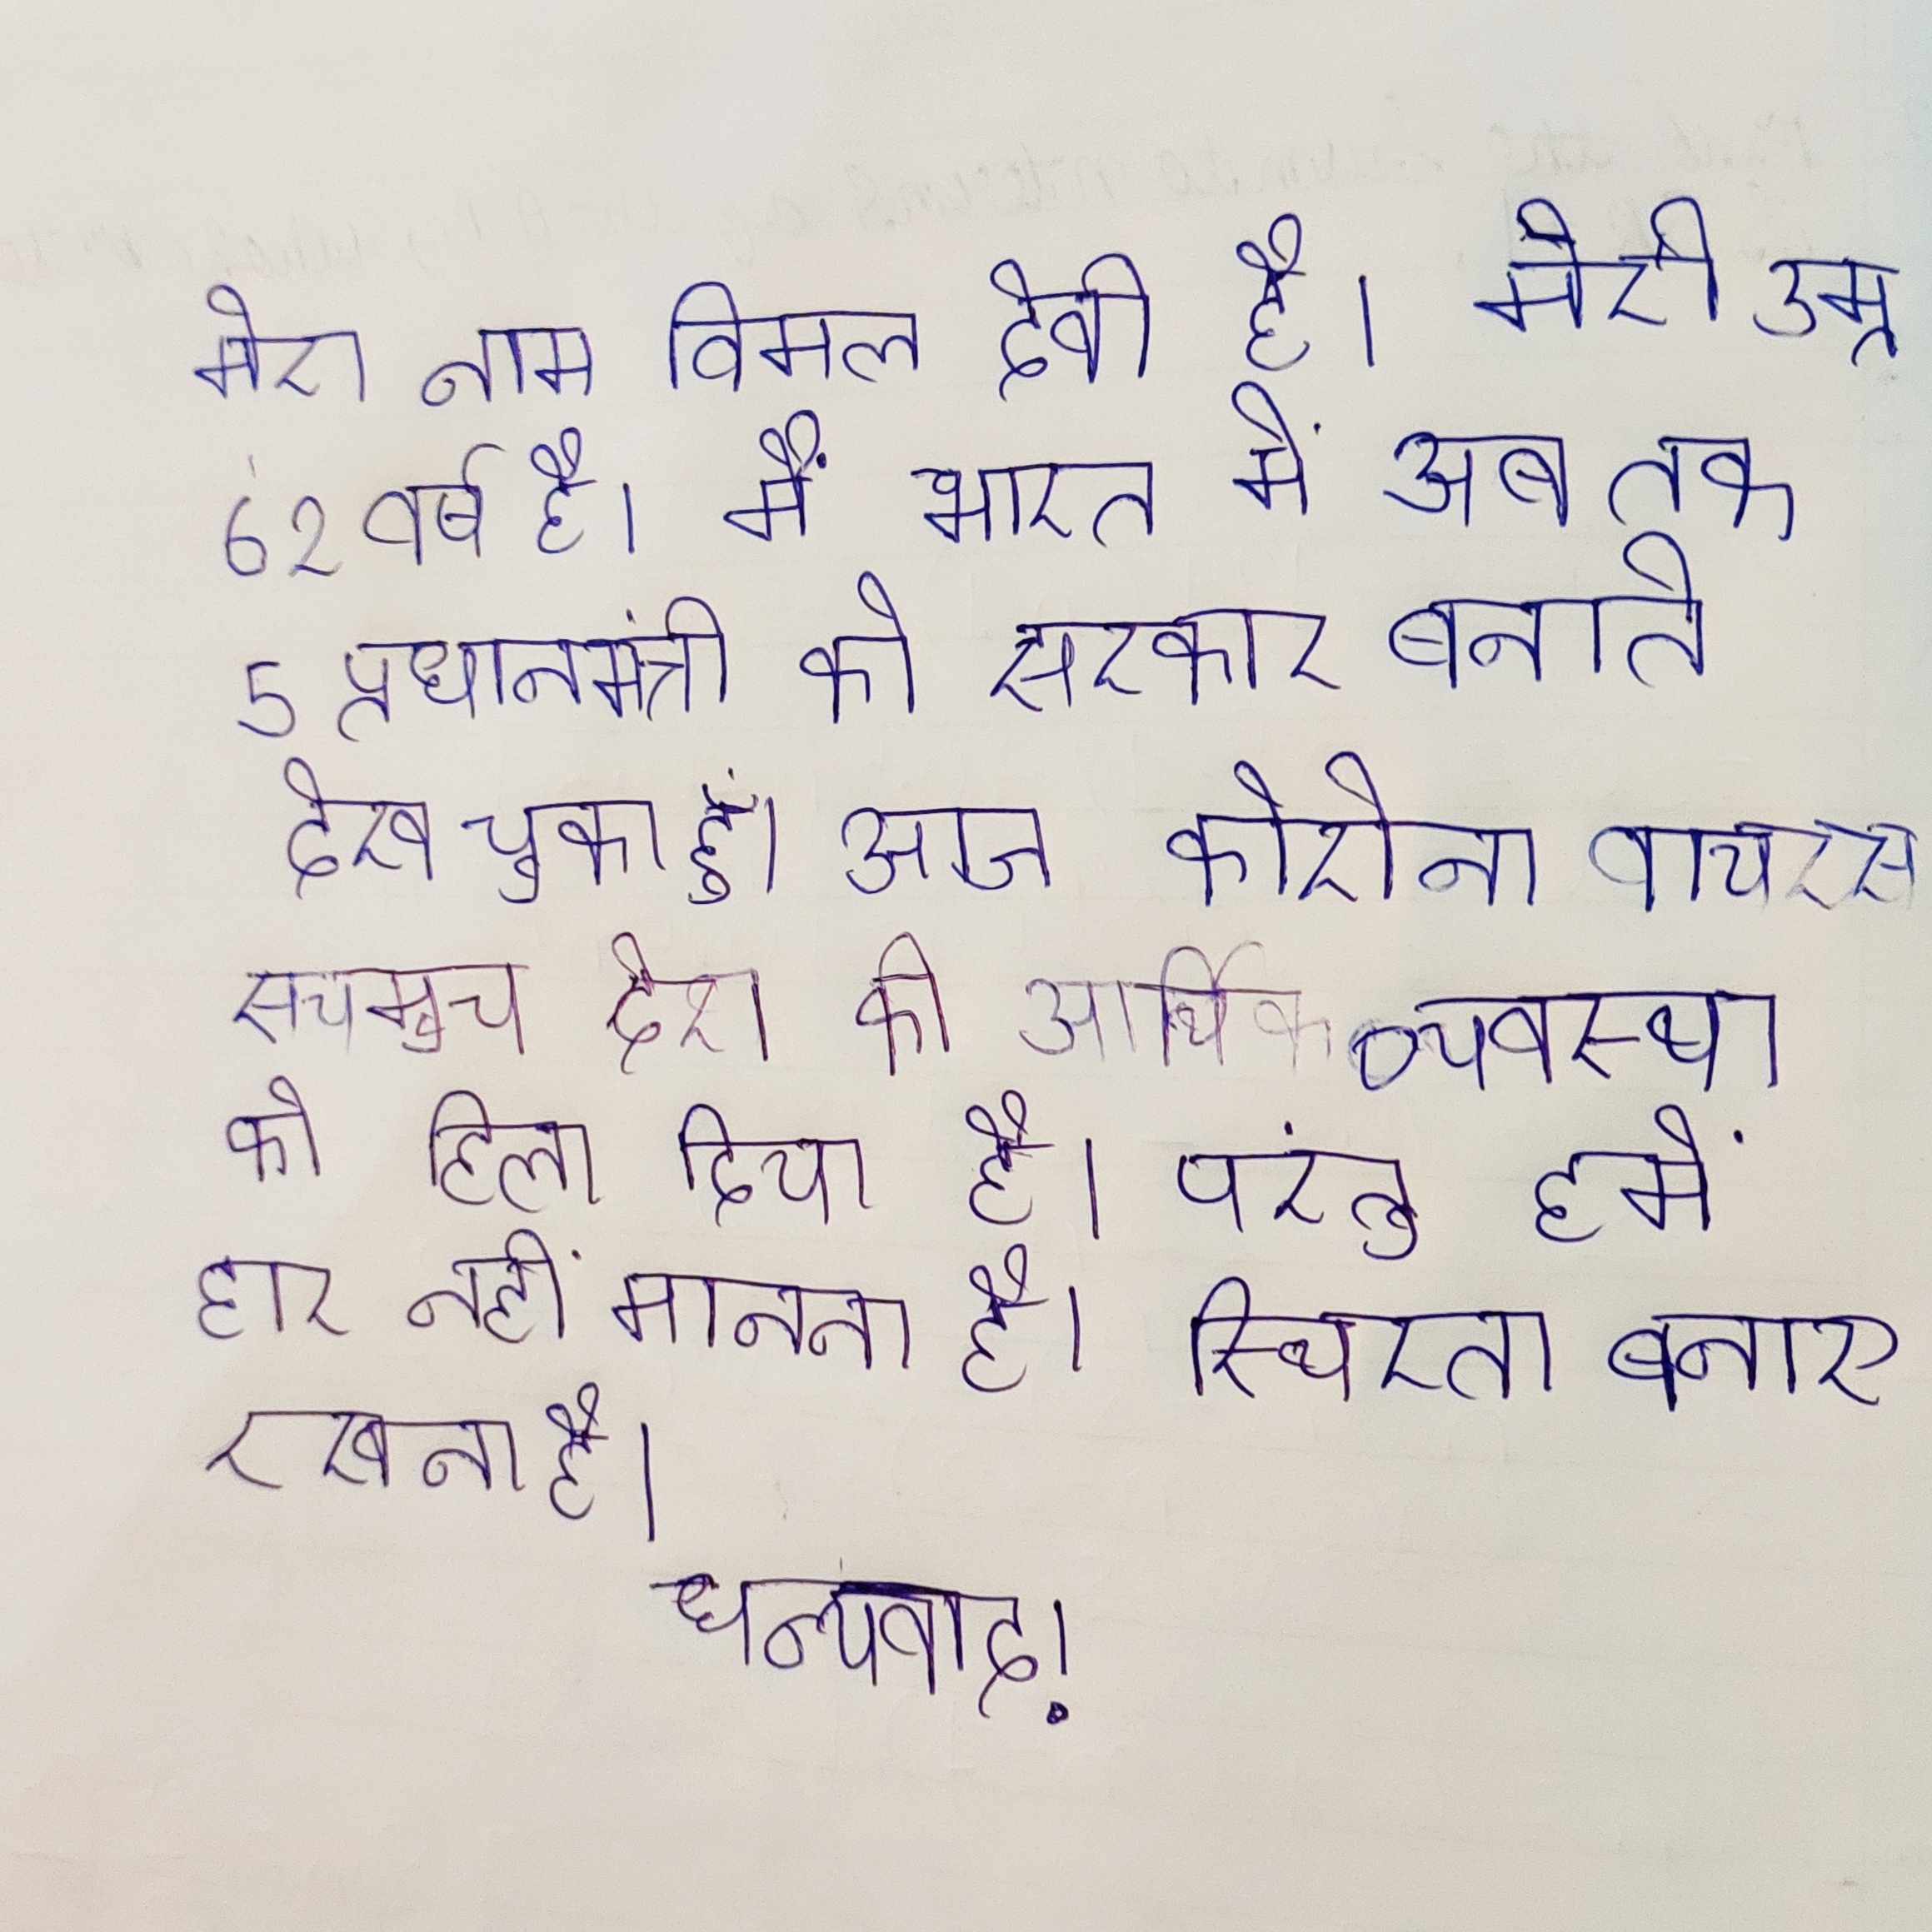 मेरा नाम विमल देवी है। मेरी उम्र
62 वर्ष है। मैं भारत में अब तक
5 प्रधानमंत्री को सरकार बनाते
देख चुका हुं। आज कोरोना वायरस
सचमुच देश की आर्थिक व्यवस्था
को हिला दिया है। परंतु हमें
हार नहीं मानना है। स्थिरता बनाए
रखना है।
धन्यवाद!